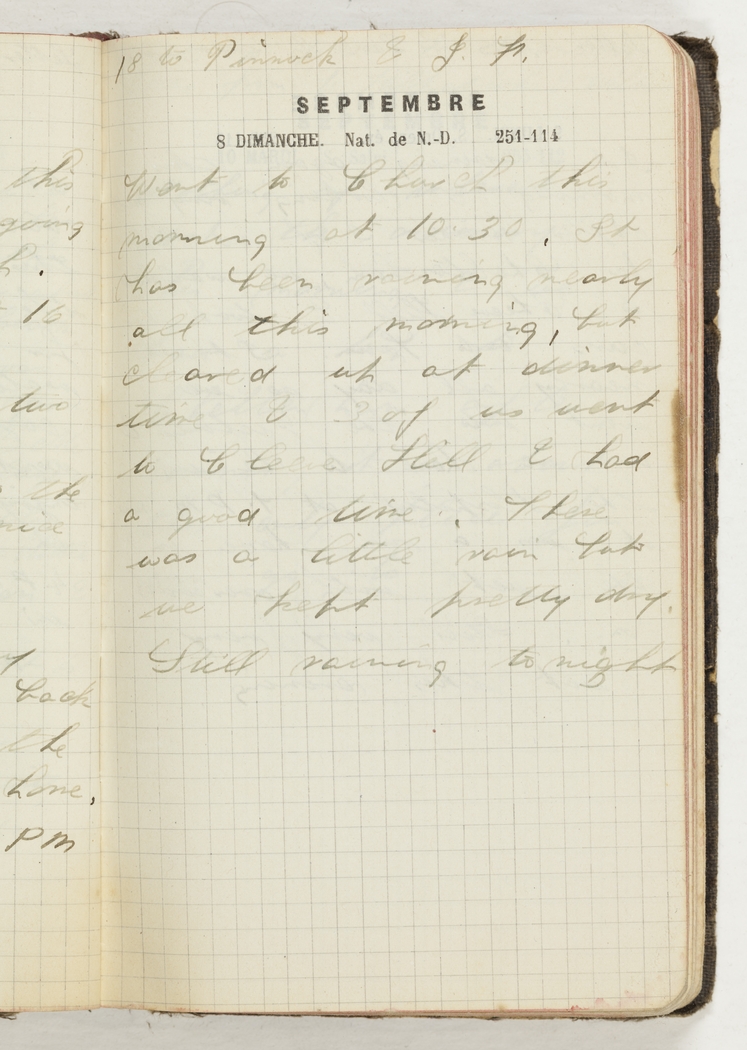 this
going
h.
16
two
the
nice
y
back
the
home,
PM
18 to Pinnock & J. P.
SEPTEMBRE
8 DIMANCHE. Nat. de N.-D. 251-114
Went to Church this
morning at 10.30, It
has been raining nearly
all this morning, but
cleared up at dinner
time & 3 of us went
to Cleeve Hill & had
a good time. There
was a little rain but
we kept pretty dry.
Still raining to night